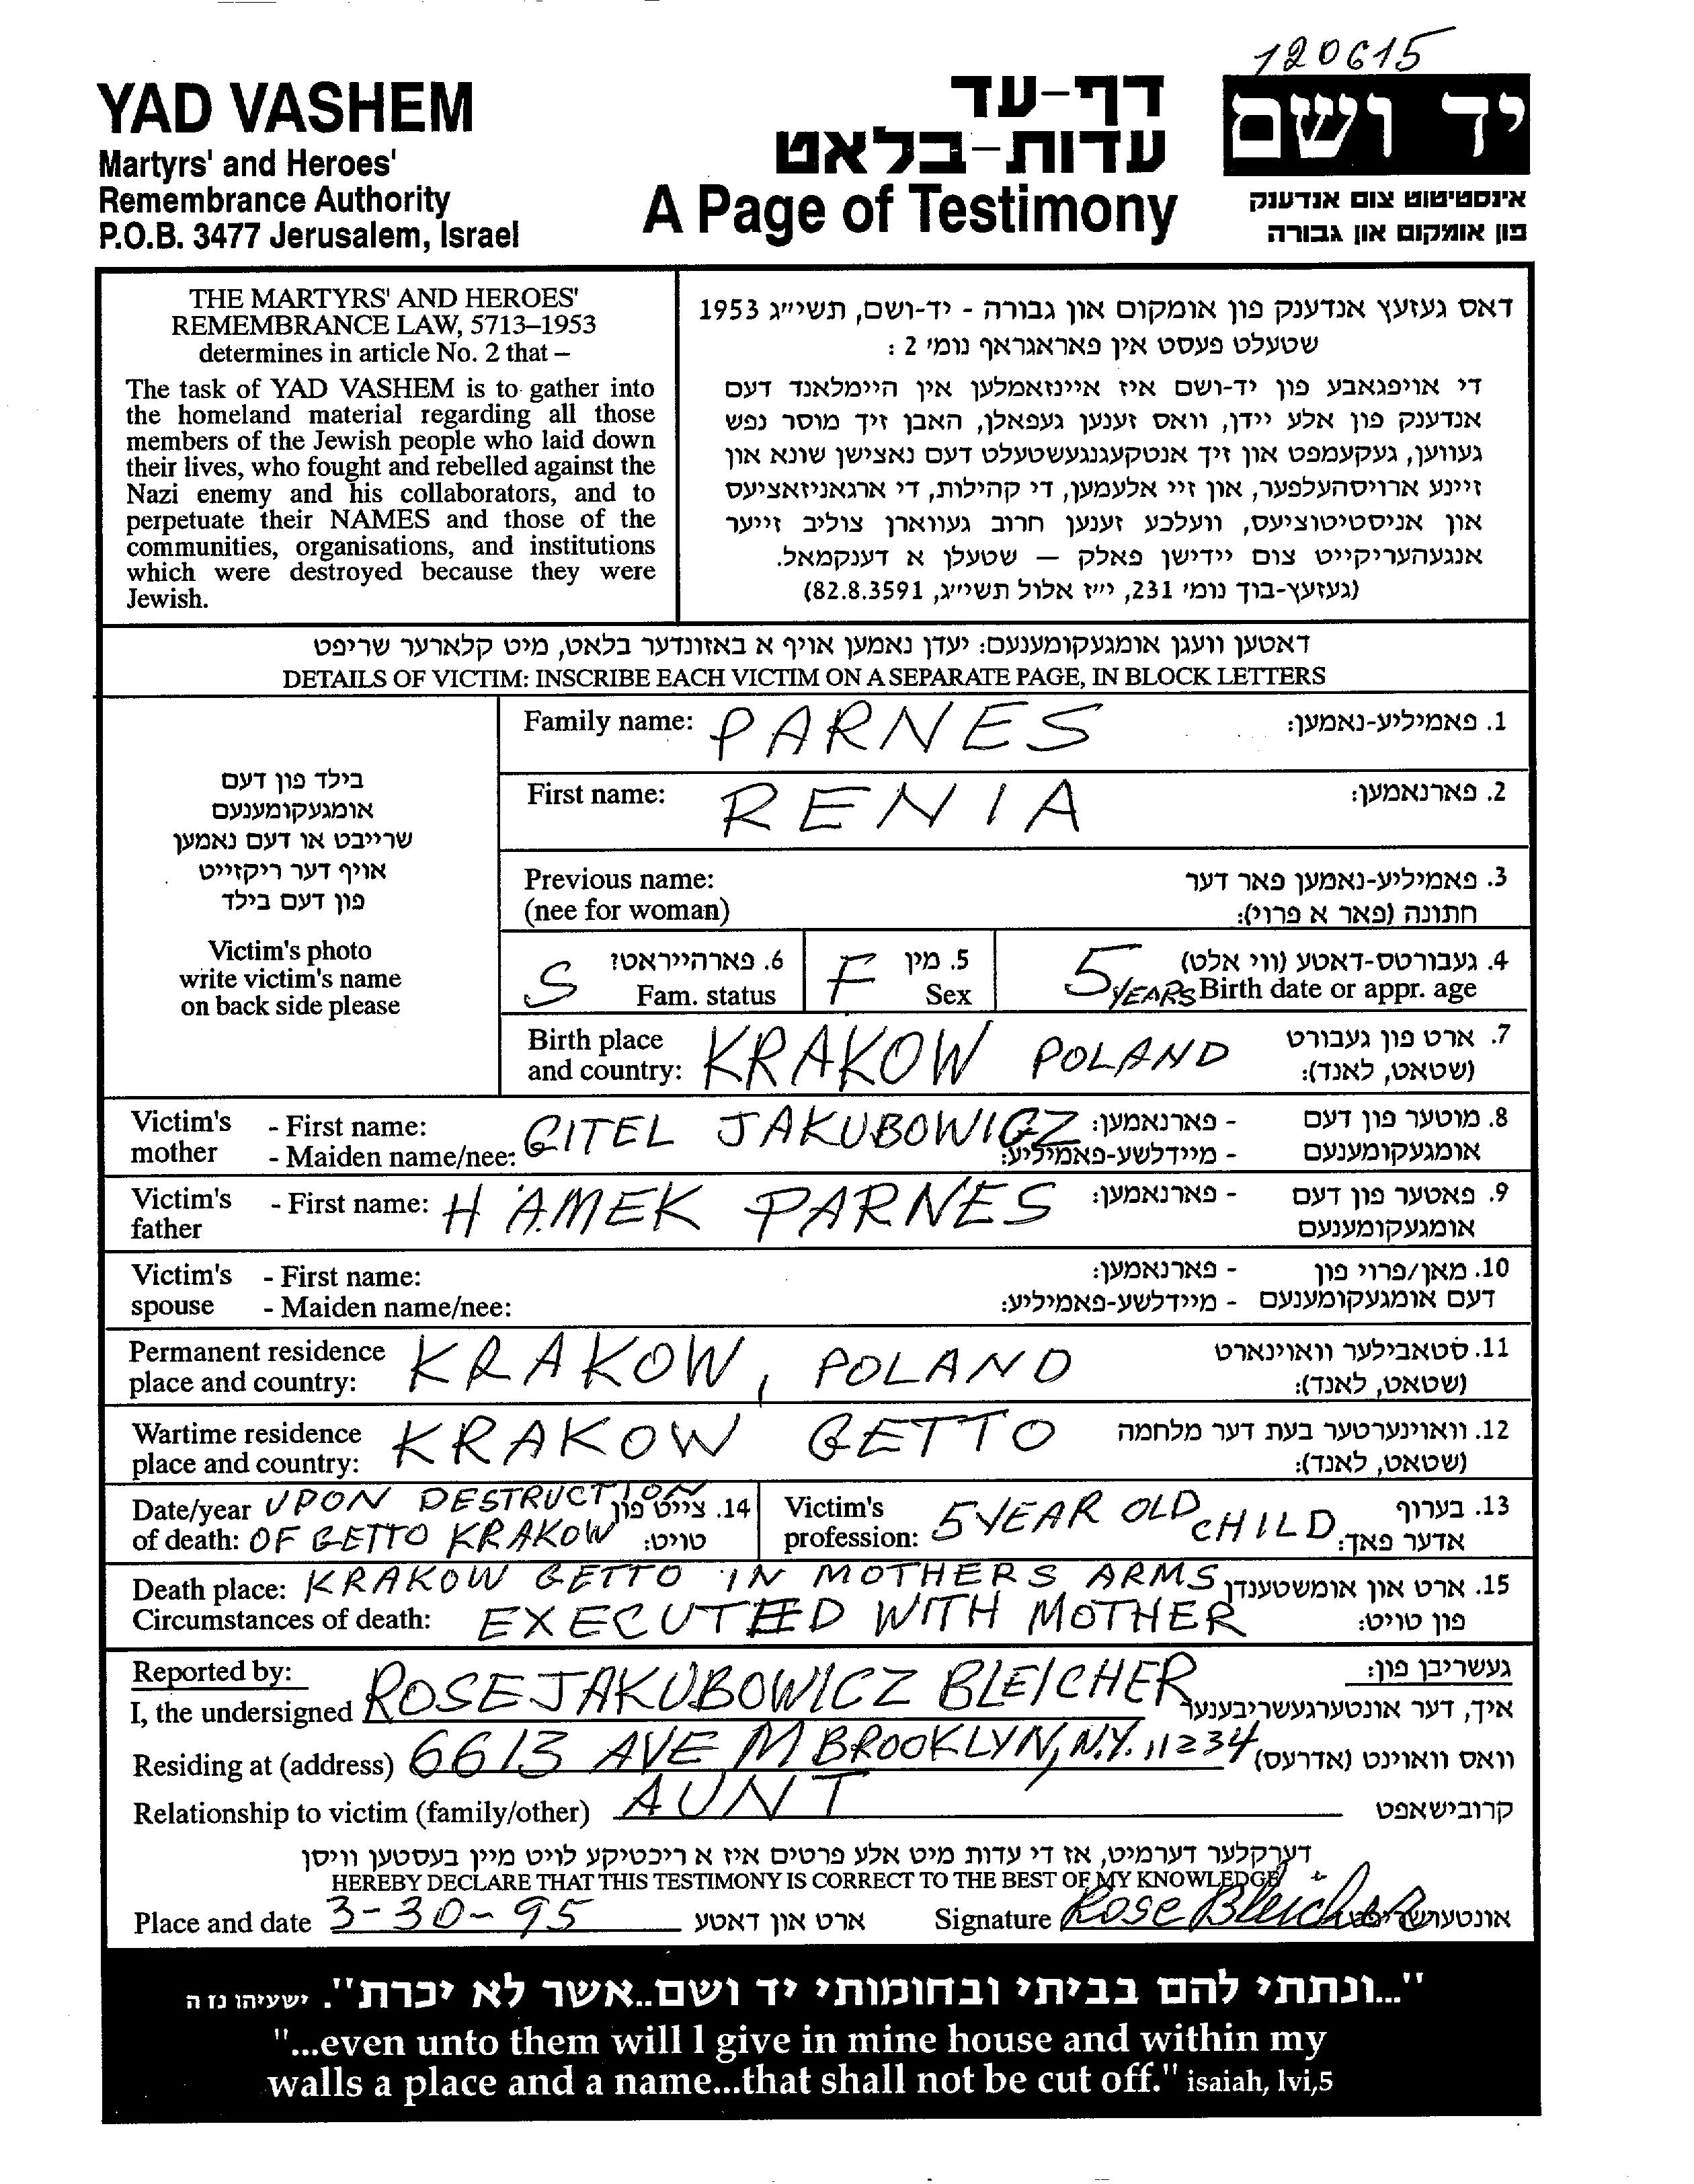 120615
YAD VASHEM
Martyrs' and Heroes'
Remembrance Authority
P.O.B. 3477 Jerusalem, Israel
דף-עד
עדות-בלאט
A Page of Testimony
יד ושם
אינסטיטוט צום אנדענק
פון אומקום און גבורה
THE MARTYRS' AND HEROES'
REMEMBRANCE LAW, 5713–1953
determines in article No. 2 that –
The task of YAD VASHEM is to gather into
the homeland material regarding all those
members of the Jewish people who laid down
their lives, who fought and rebelled against the
Nazi enemy and his collaborators, and to
perpetuate their NAMES and those of the
communities, organisations, and institutions
which were destroyed because they were
Jewish.
דאס געזעץ אנדענק פון אומקום און גבורה - יד-ושם, תשי״ג 1953
שטעלט פעסט אין פאראגראף נומ׳ 2 :
די אויפגאבע פון יד-ושם איז איינזאמלען אין היימלאנד דעם
אנדענק פון אלע יידן, וואס זענען געפאלן, האבן זיך מוסר נפש
געווען, געקעמפט און זיך אנטקעגנגעשטעלט דעם נאצישן שונא און
זיינע ארויסהעלפער, און זיי אלעמען, די קהילות, די ארגאניזאציעס
און אניסטיטוציעס, וועלכע זענען חרוב געווארן צוליב זייער
אנגעהעריקייט צום יידישן פאלק — שטעלן א דענקמאל.
(געזעץ-בוך נומ׳ 231, י״ז אלול תשי״ג, 82.8.3591)
דאטען וועגן אומגעקומענעם: יעדן נאמען אויף א באזונדער בלאט, מיט קלארער שריפט
DETAILS OF VICTIM: INSCRIBE EACH VICTIM ON A SEPARATE PAGE, IN BLOCK LETTERS
בילד פון דעם
אומגעקומענעם
שרייבט או דעם נאמען
אויף דער ריקזייט
פון דעם בילד
Victim's photo
write victim's name
on back side please
Family name: PARNES 1. פאמיליע-נאמען:
First name: RENIA 2. פארנאמען:
Previous name: 3. פאמיליע-נאמען פאר דער
(nee for woman) חתונה (פאר א פרוי):
S 6. פארהייראט? F 5. מין 5 4. געבורטס-דאטע (ווי אלט)
Fam. status Sex YEARS Birth date or appr. age
Birth place KRAKOW POLAND 7. ארט פון געבורט
and country: (שטאט, לאנד):
Victim's - First name: GITEL JAKUBOWICZ - פארנאמען: 8. מוטער פון דעם
mother - Maiden name/nee: - מיידלשע-פאמיליע: אומגעקומענעם
Victim's - First name: HAMEK PARNES - פארנאמען: 9. פאטער פון דעם
father אומגעקומענעם
Victim's - First name: - פארנאמען: 10. מאן/פרוי פון
spouse - Maiden name/nee: - מיידלשע-פאמיליע: דעם אומגעקומענעם
Permanent residence KRAKOW, POLAND 11. סטאבילער וואוינארט
place and country: (שטאט, לאנד):
Wartime residence KRAKOW GETTO 12. וואוינערטער בעת דער מלחמה
place and country: (שטאט, לאנד):
Date/year UPON DESTRUCTION 14. צייט פון Victim's 5 YEAR OLD 13. בערוף
of death: OF GETTO KRAKOW טויט: profession: CHILD אדער פאך:
Death place: KRAKOW GETTO IN MOTHERS ARMS 15. ארט און אומשטענדן
Circumstances of death: EXECUTED WITH MOTHER פון טויט:
Reported by: געשריבן פון:
I, the undersigned ROSE JAKUBOWICZ BLEICHER איך, דער אונטערגעשריבענער
Residing at (address) 6613 AVE M BROOKLYN, N.Y. 11234 וואס וואוינט (אדרעס)
Relationship to victim (family/other) AUNT קרובישאפט
דערקלער דערמיט, אז די עדות מיט אלע פרטים איז א ריכטיקע לויט מיין בעסטען וויסן
HEREBY DECLARE THAT THIS TESTIMONY IS CORRECT TO THE BEST OF MY KNOWLEDGE
Place and date 3-30-95 ארט און דאטע Signature Rose Bleicher אונטערשריפט
"...ונתתי להם בביתי ובחומותי יד ושם..אשר לא יכרת". ישעיהו נז ה
"...even unto them will I give in mine house and within my
walls a place and a name...that shall not be cut off." isaiah, lvi,5